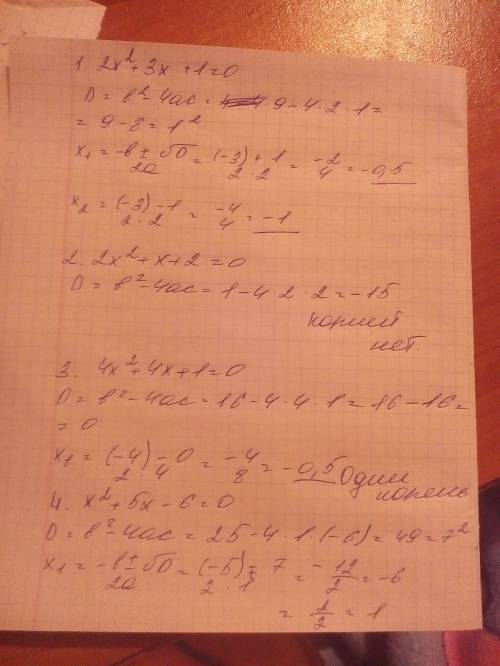 1. 2x²+3x+1=0
D=b²-4ac= 9-4·2·1=
=9-8=1²
x₁=-b±√D/2a=(-3)+1/2·2=-2/4=-0,5
x₂=(-3)-1/2·2=-4/4=-1
2. 2x²+x+2=0
D=b²-4ac=1-4·2·2=-15
корней
нет.
3. 4x²+4x+1=0
D=b²-4ac=16-4·4·1=16-16=
=0
x₁=(-4)-0/2·4=-4/8=-0,5 Один
корень
4. x²+5x-6=0
D=b²-4ac=25-4·1·(-6)=49=7²
x₁=-b±√D/2a=(-5)∓7/2·1=-12/2=-6
=2/2=1